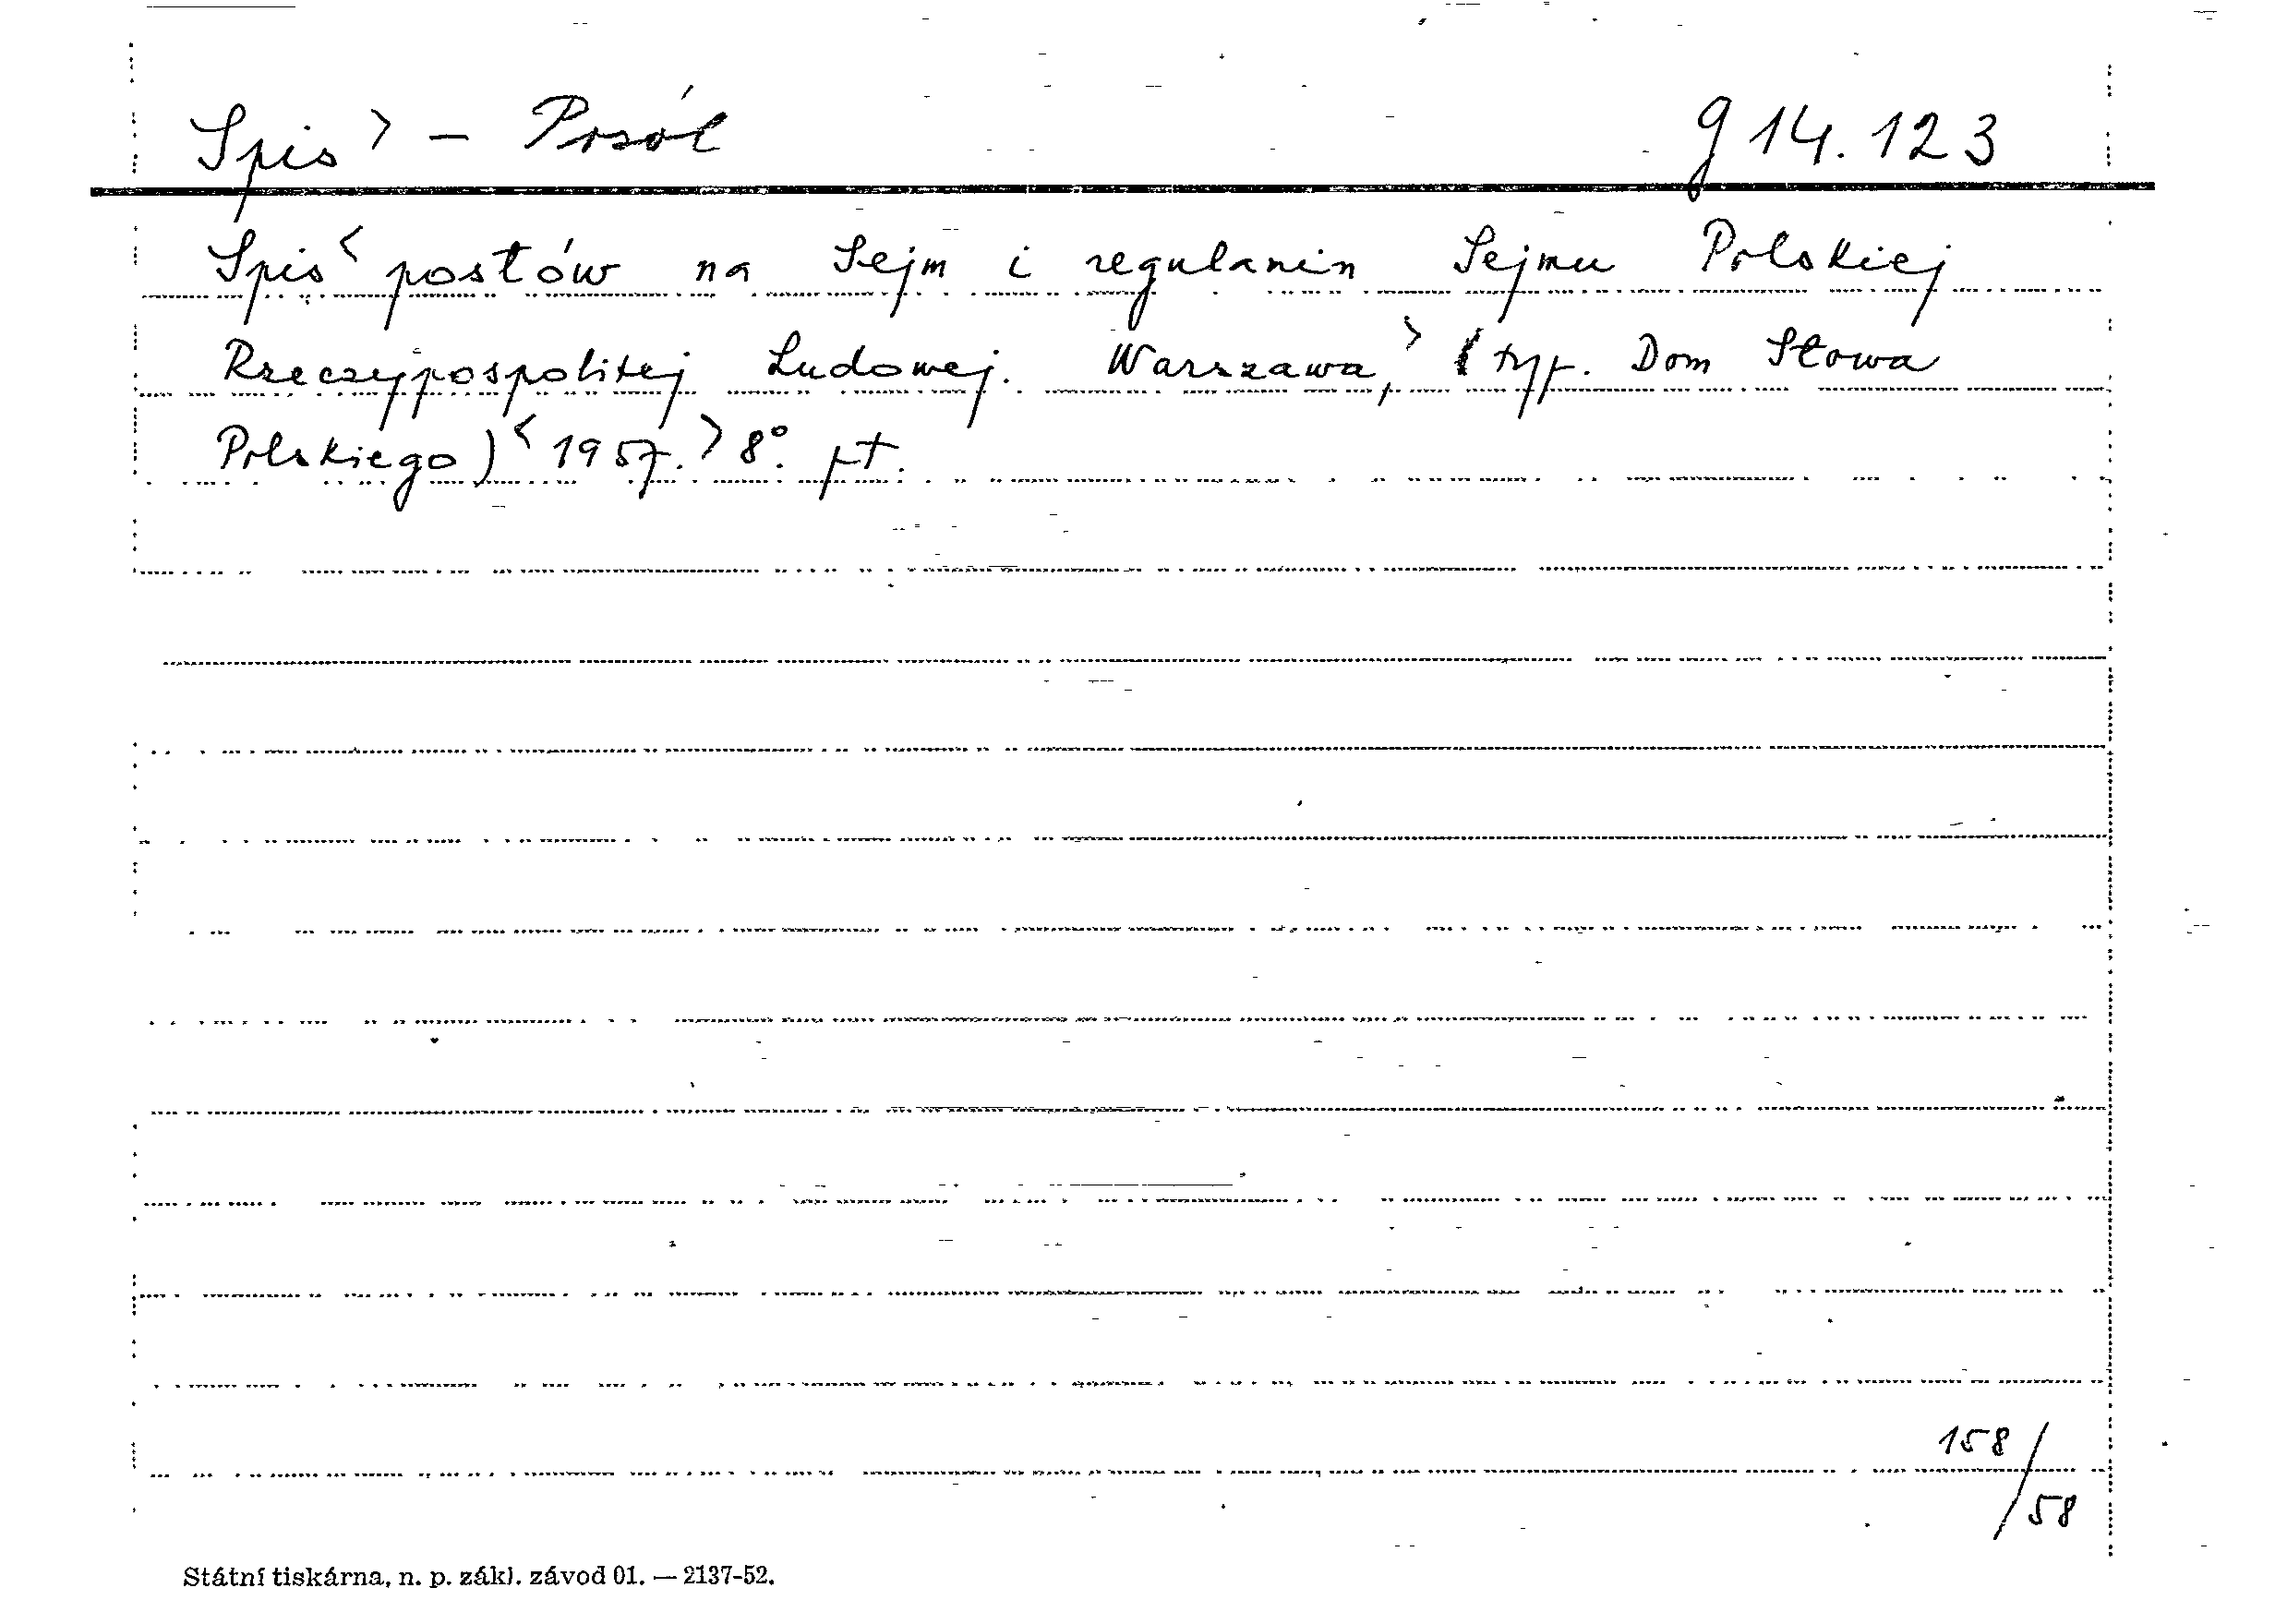 Spis > - Posól g 14.123
Spis < posłów na Sejm i regulamin Sejmu Polskiej
Rzeczypospolitej Ludowej. Warszawa, > (typ. Dom Słowa
Polskiego) < 1957. > 8°. pt.
158/58
Státní tiskárna, n. p. zákl. závod 01. — 2137-52.